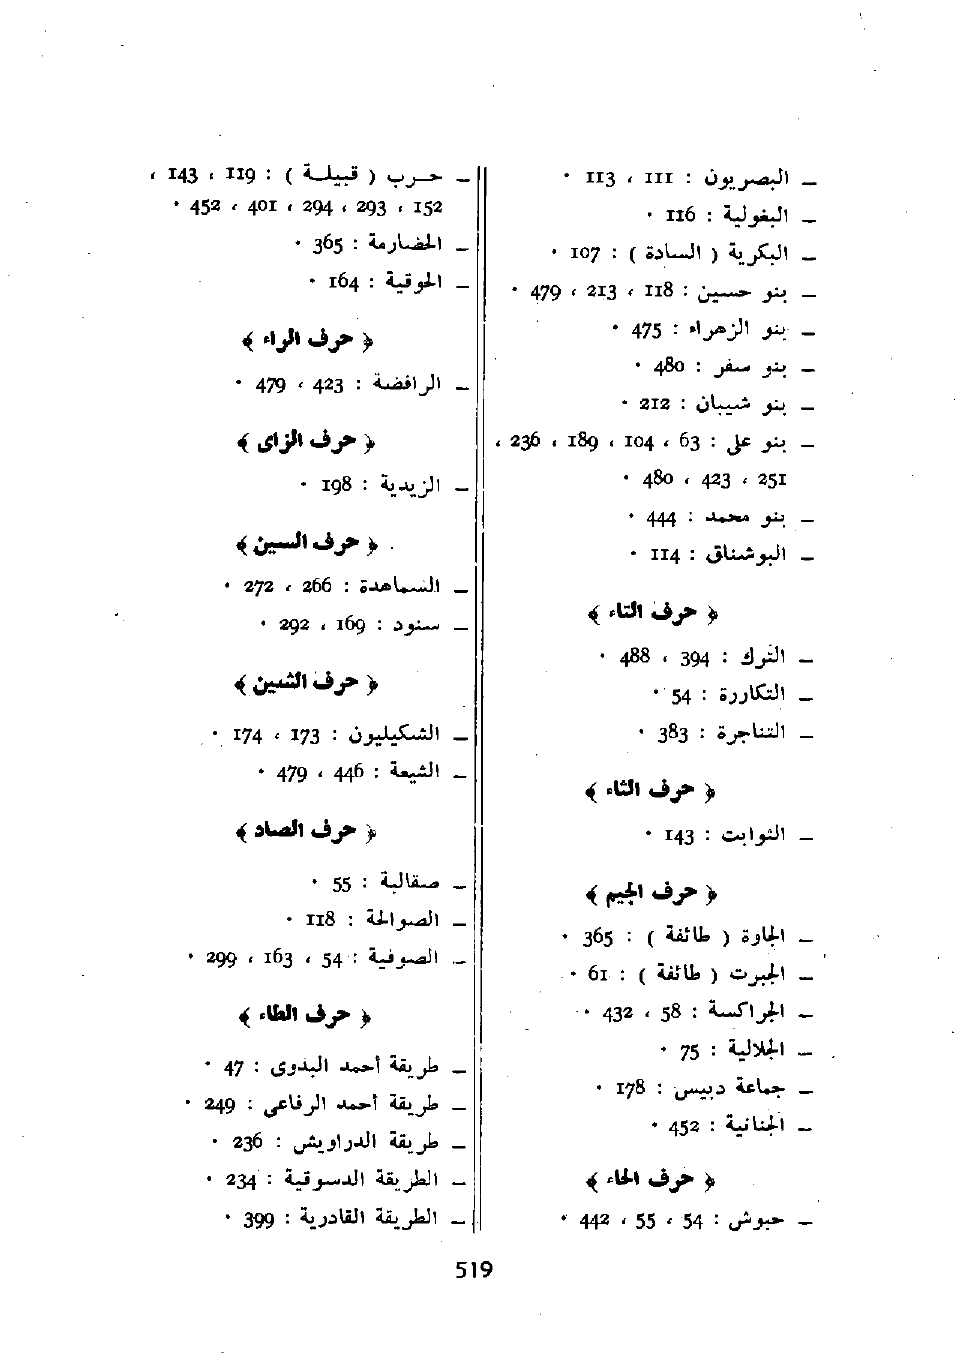 ــ البصريون : 111 ، 113 ٠
ــ البغولية : 116 ٠
ــ البكرية ( السادة ) : 107 ٠
ــ بنو حسين : 118 ، 213 ، 479 ٠
ــ بنو الزهراء : 475 ٠
ــ بنو سفر : 480 ٠
ــ بنو شيبان : 212 ٠
ــ بنو على : 63 ، 104 ، 189 ، 236 ،
251 ، 423 ، 480 ٠
ــ بنو محمد : 444 ٠
ــ البوشناق : 114 ٠
﴿ حرف التاء ﴾
ــ الترك : 394 ، 488 ٠
ــ التكاررة : 54 ٠
ــ التناجرة : 383 ٠
﴿ حرف الثاء ﴾
ــ الثوابت : 143 ٠
﴿ حرف الجيم ﴾
ــ الجازة ( طائفة ) : 365 ٠
ــ الجبرت ( طائفة ) : 61 ٠
ــ الجراكسة : 58 ، 432 ٠
ــ الجلالية : 75 ٠
ــ جماعة دبيس : 178 ٠
ــ الجنانية : 452 ٠
﴿ حرف الحاء ﴾
ــ حبوش : 54 ، 55 ، 442 ٠
ــ حرب ( قبيلة ) : 119 ، 143 ،
152 ، 293 ، 294 ، 401 ، 452 ٠
ــ الحضارمة : 365 ٠
ــ الحوقية : 164 ٠
﴿ حرف الراء ﴾
ــ الرافضة : 423 ، 479 ٠
﴿ حرف الزاى ﴾
ــ الزيدية : 198 ٠
﴿ حرف السين ﴾
ــ السماهدة : 266 ، 272 ٠
ــ سنود : 169 ، 292 ٠
﴿ حرف الشين ﴾
ــ الشكيليون : 173 ، 174 ٠
ــ الشيعة : 446 ، 479 ٠
﴿ حرف الصاد ﴾
ــ صقالبة : 55 ٠
ــ الصوالحة : 118 ٠
ــ الصوفية : 54 ، 163 ، 299 ٠
﴿ حرف الطاء ﴾
ــ طريقة أحمد البدوى : 47 ٠
ــ طريقة أحمد الرفاعى : 249 ٠
ــ طريقة الدراويش : 236 ٠
ــ الطريقة الدسوقية : 234 ٠
ــ الطريقة القادرية : 399 ٠
519